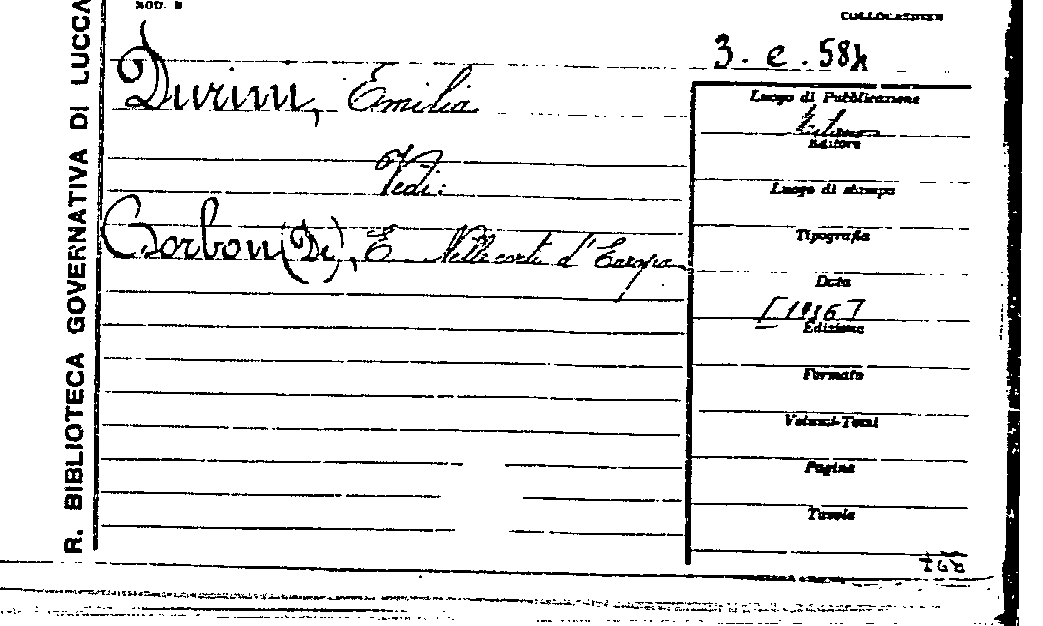 MOD. B
COLLOCAZIONE
3. e. 584
R. BIBLIOTECA GOVERNATIVA DI LUCCA
Durini, Emilia
Vedi:
Borbon (De), E. Nelle corti d'Europa
Luogo di Pubblicazione
Milano
Editore
Luogo di stampa
Tipografia
Data
[1936]
Edizione
Formato
Volumi-Tomi
Pagine
Tavole